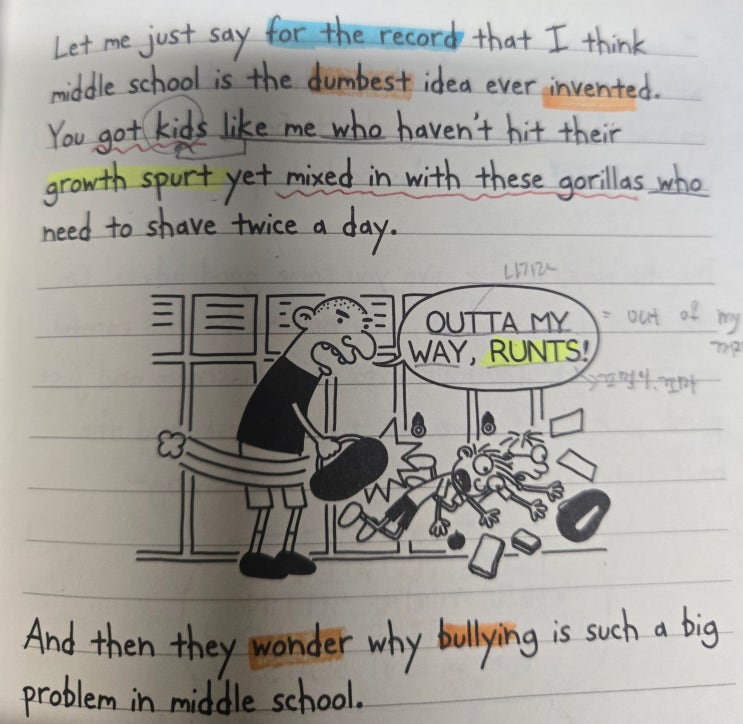 Let me just say for the record that I think
middle school is the dumbest idea ever invented.
You got kids like me who haven't hit their
growth spurt yet mixed in with these gorillas who
need to shave twice a day.
OUTTA MY
WAY, RUNTS!
= out of my
And then they wonder why bullying is such a big
problem in middle school.